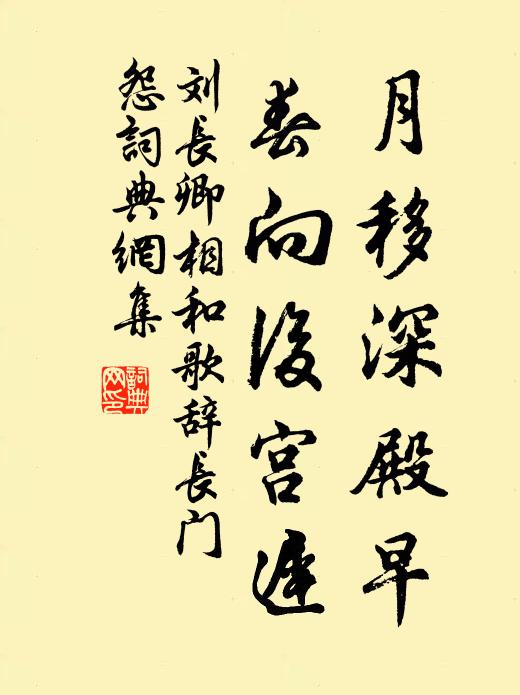 月移深殿早
春向後宫遲
刘長卿相和歌辞長门
怨詞典網集
詞典
网印